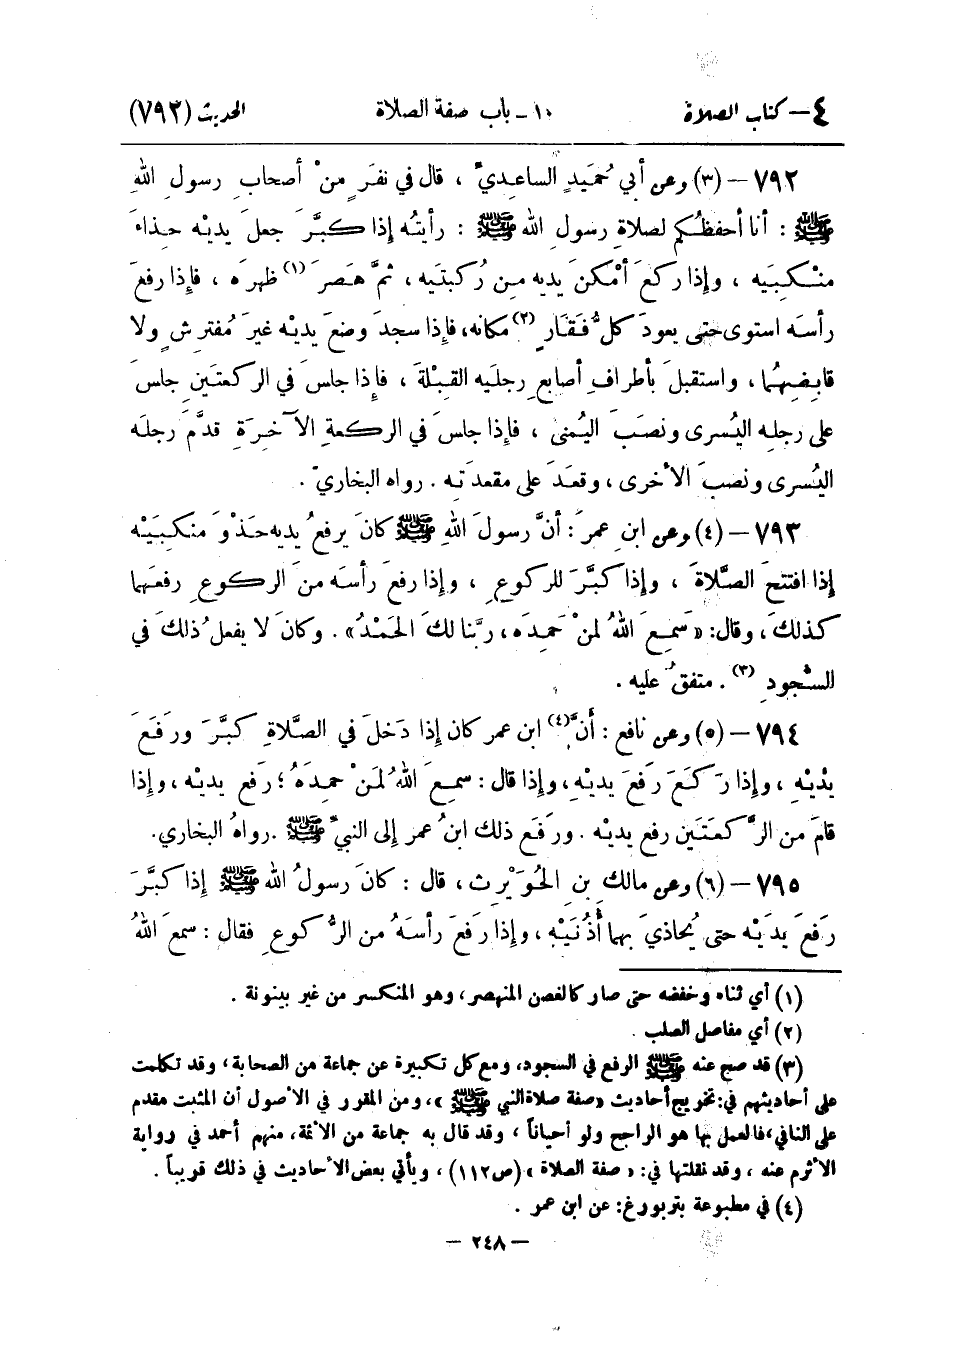 ٤ – كتاب الصلاة ١٠ – باب صفة الصلاة الحديث (٧٩٢)
٧٩٢ – (٣) وعن أبي حُمَيدٍ الساعِديّ ، قال في نفَرٍ منْ أصحابِ رسولِ اللهِ
ﷺ : أنا أحفظُكم لصلاةِ رسولِ الله ﷺ : رأيتُه إذا كبَّرَ جعلَ يديْه حِذاءَ
منْكِبيه ، وإذا ركعَ أمْكنَ يديه مِن رُكبتَيه ، ثمَّ هَصَرَ (١) ظهرَه ، فإذا رفعَ
رأسَه استوى حتى يعودَ كلُّ فَقَارٍ (٢) مكانَه، فإذا سجدَ وضعَ يديْه غيرَ مُفترِشٍ ولا
قابِضِهُما ، واستقبلَ بأطرافِ أصابعِ رجلَيه القِبْلةَ ، فإذا جلسَ في الركعتَينِ جلسَ
على رجلِه اليُسرى ونصَبَ اليُمنى ، فإذا جلسَ في الركعةِ الآخِرَةِ قدَّمَ رجلَه
اليُسرى ونصبَ الأخرى ، وقعَدَ على مقعدَتِه . رواه البخاريّ .
٧٩٣ – (٤) وعن ابنِ عمرَ : أنَّ رسولَ اللهِ ﷺ كانَ يرفعُ يديه حَذْوَ منكِبَيْه
إذا افتتحَ الصَّلاةَ ، وإذا كبَّرَ للركوعِ ، وإذا رفعَ رأسَه منَ الركوعِ رفعَهما
كذلكَ ، وقال: «سَمِعَ اللهُ لمنْ حَمِدَه ، ربَّنا لكَ الحَمْدُ» . وكانَ لا يفعلُ ذلكَ في
السُّجودِ (٣) . متفقٌ عليه .
٧٩٤ – (٥) وعن نافعٍ : أنَّ (٤) ابن عمر كان إذا دَخلَ في الصَّلاةِ كبَّرَ ورفَعَ
يدْيْهِ ، وإذا رَكَعَ رَفَعَ يديْهِ ، وإذا قال : سمِعَ اللهُ لمَنْ حمِدَهُ ؛ رَفع يديْه ، وإذا
قامَ من الرَّكعَتَين رفع يديْه . ورفَع ذلك ابنُ عمر إلى النبيّ ﷺ . رواهُ البخاري.
٧٩٥ – (٦) وعن مالك بنِ الحُوَيْرِث ، قال : كانَ رسولُ الله ﷺ إذا كبَّرَ
رفعَ يدَيْه حتى يُحاذيَ بهما أُذُنَيْهِ ، وإذا رَفعَ رأسَهُ من الرُّكوعِ فقال : سمعَ اللهُ
(١) أي ثناه وخفضه حتى صار كالغصن المنهصر، وهو المنكسر من غير بينونة .
(٢) أي مفاصل الصلب .
(٣) قد صح عنه ﷺ الرفع في السجود، ومع كل تكبيرة عن جماعة من الصحابة ، وقد تكلمت
على أحاديثهم في: تخريج أحاديث «صفة صلاة النبي ﷺ» ، ومن المقرر في الأصول أن المثبت مقدم
على النافي، فالعمل بها هو الراجح ولو أحياناً ، وقد قال به جماعة من الأئمة، منهم أحمد في رواية
الأثرم عنه ، وقد نقلتها في: « صفة الصلاة » (ص١١٢) ، ويأتي بعض الأحاديث في ذلك قريباً .
(٤) في مطبوعة بتربورغ: عن ابن عمر .
– ٢٤٨ –